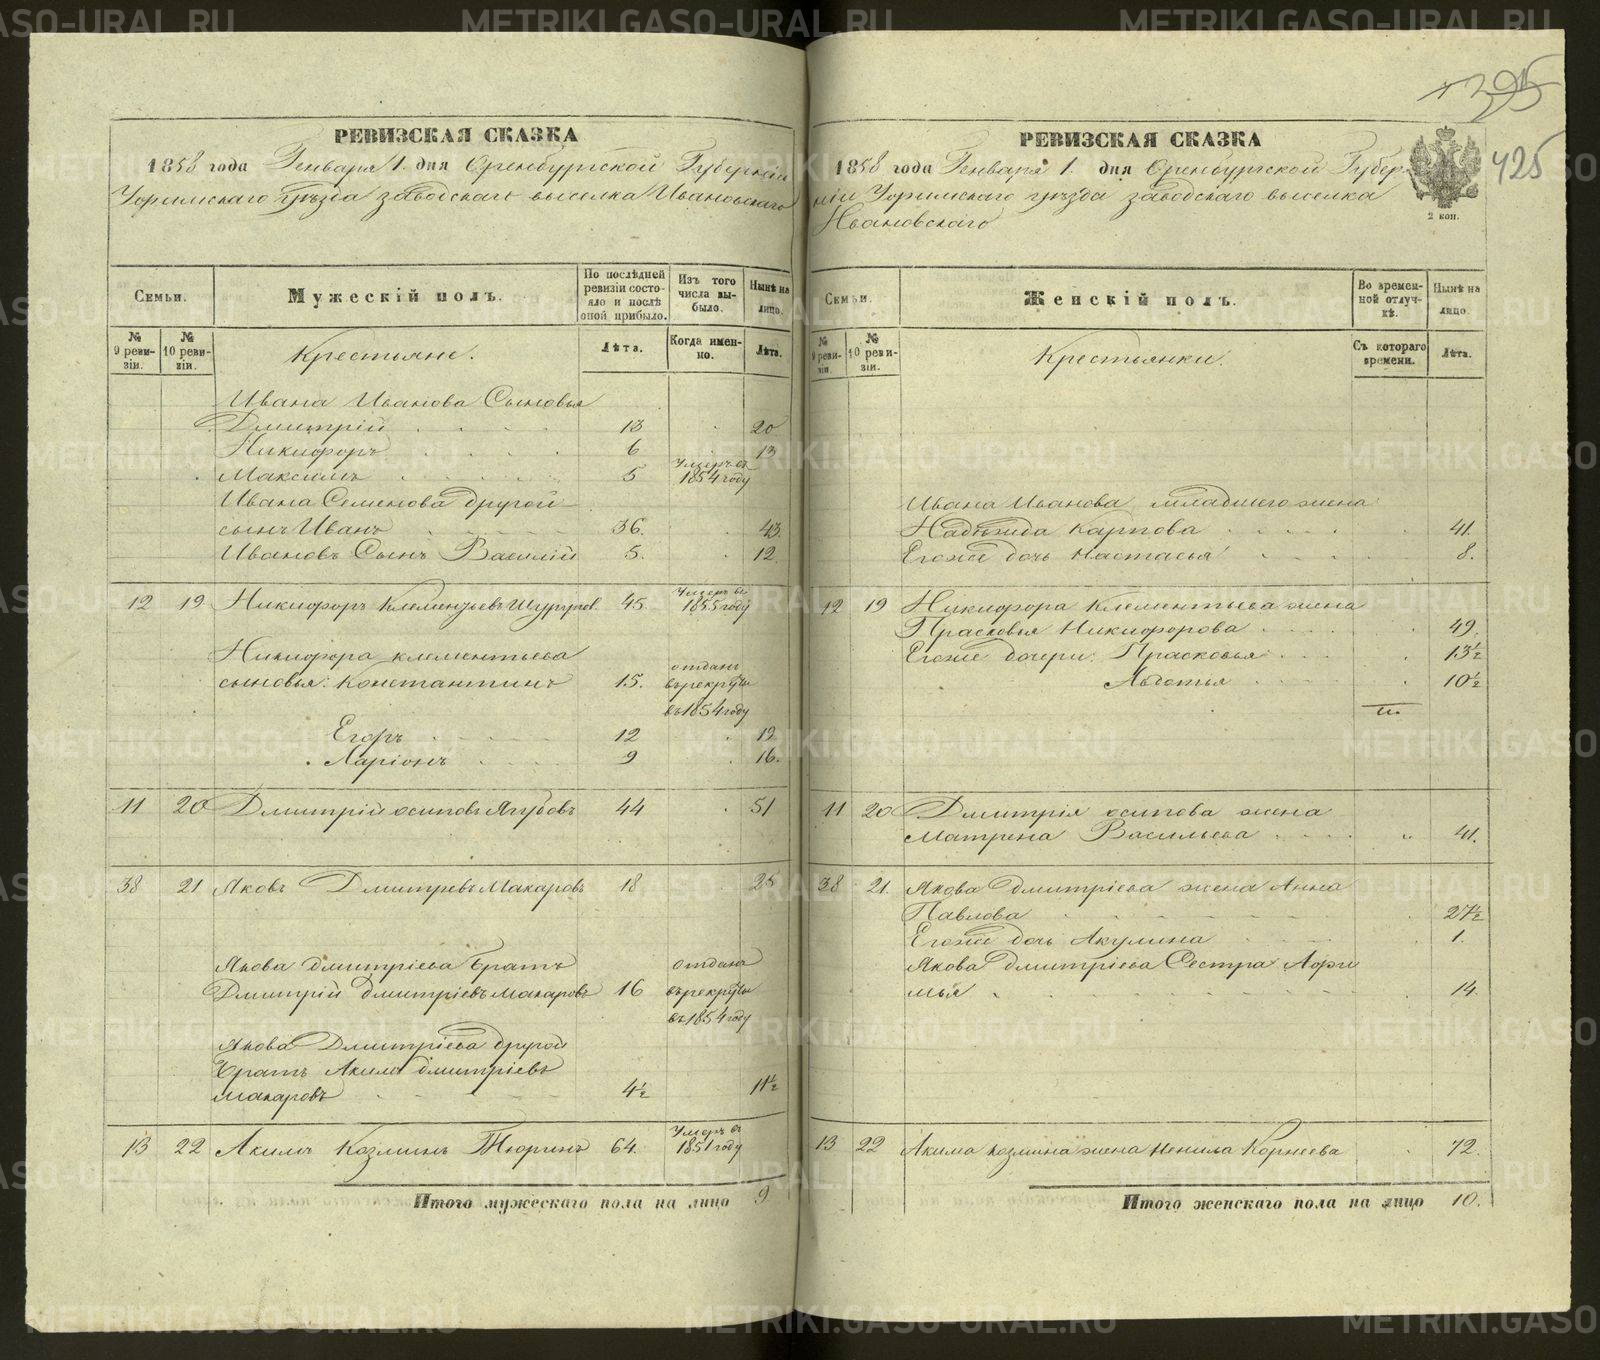 РЕВИЗСКАЯ СКАЗКА
1858 года Генваря 1. дня Оренбургской Губерніи
Уѣзда заводскаго выселка Ивановскаго
Семьи.
Мужескій полъ.
По послѣдней ревизіи состояло и послѣ оной прибыло.
Изъ того числа выбыло.
Нынѣ на лицо.
№ 9 ревизіи.
№ 10 ревизіи.
Крестьяне.
Лѣта.
Когда именно.
Лѣта.
Ивана Иванова Сыновья
Дмитрій 13 20
Никифоръ 6 13
Максимъ 5 Умеръ въ 1854 году
Ивана Семенова другой
сынъ Иванъ 36. 43.
Ивановъ Сынъ Василій 5. 12.
12 19 Никифоръ Клементьевъ 45. Умеръ въ 1855 году
Никифора клементьева
сыновья: Константинъ 15. отданъ въ рекруты въ 1854 году
Егоръ 12 19
Ларіонъ 9 16.
11 20 Дмитрій осиповъ Ягубовъ 44 51
38 21 Яковъ Дмитревъ Макаровъ 18 25
Якова дмитріева Братъ
Дмитрій дмитріевъ макаровъ 16 отданъ въ рекруты въ 1854 году
Якова Дмитріева другой
Братъ Акимъ дмитріевъ
макаровъ 4½ 11½
13 22 Акимъ Козминъ Тюринъ 64. Умеръ въ 1851 году
Итого мужескаго пола на лицо 9
395
425
РЕВИЗСКАЯ СКАЗКА
1858 года Генваря 1. дня Оренбургской Губер-
ніи уѣзда заводскаго выселка
Ивановскаго
2 коп.
Семьи.
Женскій полъ.
Во временной отлучкѣ.
Нынѣ на лицо.
№ 9 ревизіи.
№ 10 ревизіи.
Крестьянки.
Съ котораго времени.
Лѣта.
Ивана Иванова младшего жена
Надѣжда Карпова 41.
Егоже дочь Настасья 8.
12 19 Никифора Клементьева жена
Прасковья Никифорова 49.
Егоже дочери: Прасковья 13½
Авдотья 10½
11 20 Дмитрія осипова жена
Матрена Васильева 41.
38 21. Якова дмитріева жена Анна
Павлова 27½
Егоже дочь Акулина 1.
Якова дмитріева Сестра
14.
13 22 Акима козмина жена Ненила Корнеева 72.
Итого женскаго пола на лицо 10.
METRIKI.GASO-URAL.RU